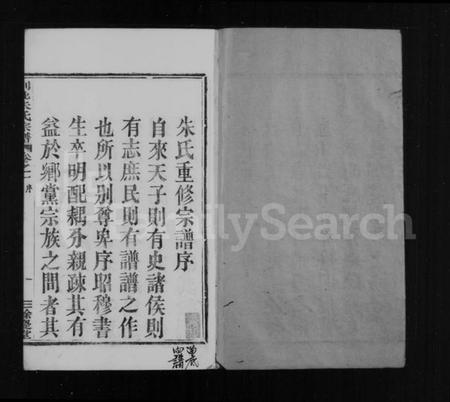 朱氏重修宗譜序
自來天子則有史諸侯則
有志庶民則有譜譜之作
也所以別尊卑序昭穆書
生卒明配耦分親疎其有
益於鄉黨宗族之間者其
朱氏宗譜 卷之一 序
FamilySearch